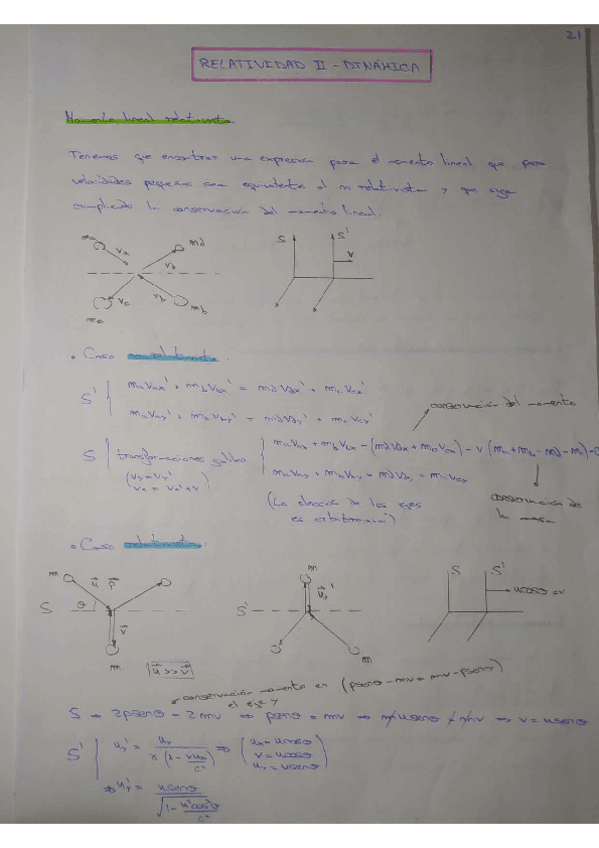 21
RELATIVIDAD II - DINÁMICA
Momento lineal relativista
Tenemos que encontrar una expresión para el momento lineal que para
velocidades pequeñas sea equivalente al no relativista y que siga
cumpliendo la conservación del momento lineal.
ma va vd md S S' v
mc vc vb mb
• Caso no relativista:
S' { ma vax' + mb vbx' = md vdx' + mc vcx'
conservación del momento
S { transformaciones galileo { ma vax + mb vbx - (md vdx + mc vcx) - v (ma + mb - md - mc) = 0
(vy = vy'
vx = vx' + v)
(La elección de los ejes
es arbitraria)
conservación de
la masa
• Caso relativista:
m u, p S θ v m
S' m uy' m
S S' ucosθ = v
|u >> v|
conservación momento en (psenθ - mv = mv - psenθ)
el eje y
S → 2psenθ = 2mv ⇒ psenθ = mv ⇒ musenθ = mv ⇒ v = usenθ
S' { uy' = uy / γ(1 - vux/c²) ⇒ (ux = ucosθ
v = ucosθ
uy = usenθ)
⇒ uy' = usenθ / √(1 - u²cos²θ/c²)